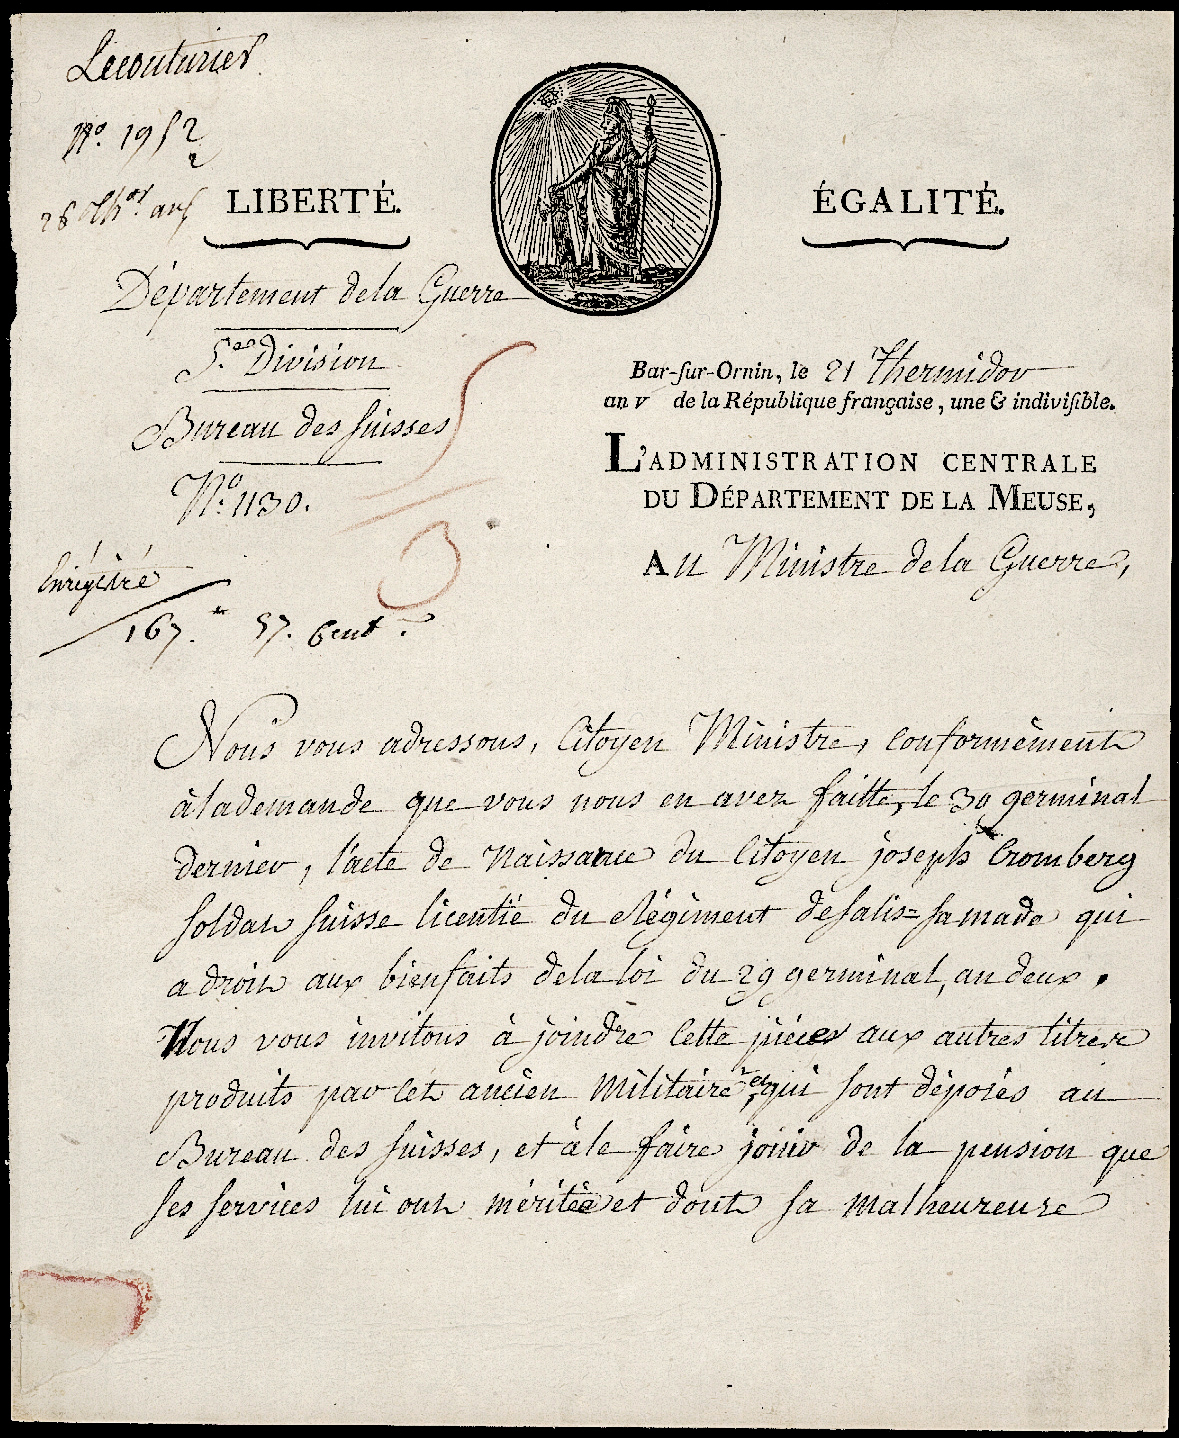 Lecouturier
No. 1952
2
28 Thor. an 5
LIBERTÉ.
ÉGALITÉ.
Département de la Guerre
5.e Division
Bureau des Suisses
No. 1130.
5
3
Enrégistré
167. 57. Cent.
Bar-sur-Ornin, le 21 Thermidor
an v de la République française, une & indivisible.
L'ADMINISTRATION CENTRALE
DU DÉPARTEMENT DE LA MEUSE,
Au Ministre de la Guerre,
Nous vous adressons, Citoyen Ministre, conformément
à la demande que vous nous en avez faitte, le 30 germinal
dernier, l'acte de Naissance du Citoyen joseph Cromberg
soldat suisse licentié du Régiment de Salis=Samade qui
a droit aux bienfaits de la loi du 29 germinal, an deux.
Nous vous invitons à joindre cette pièce aux autres titres
produits par cet ancien Militaire, et qui sont déposés au
Bureau des Suisses, et à le faire jouir de la pension que
ses services lui ont méritée et dont sa malheureuse